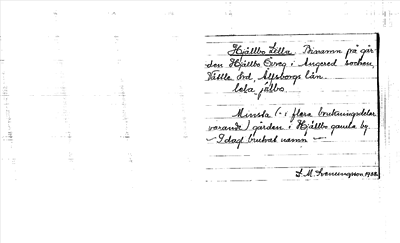 Hjällbo Lilla. Binamn på går-
den Hjällbo Övreg. i Angered socken,
Vättle hrd, Älfsborgs län.
loba jälbo.
Minsta (- i flera brukningsdelar
varande) gården i Hjällbo gamla by.
- Idag brukat namn -
S. M. Svenungsson 1922.